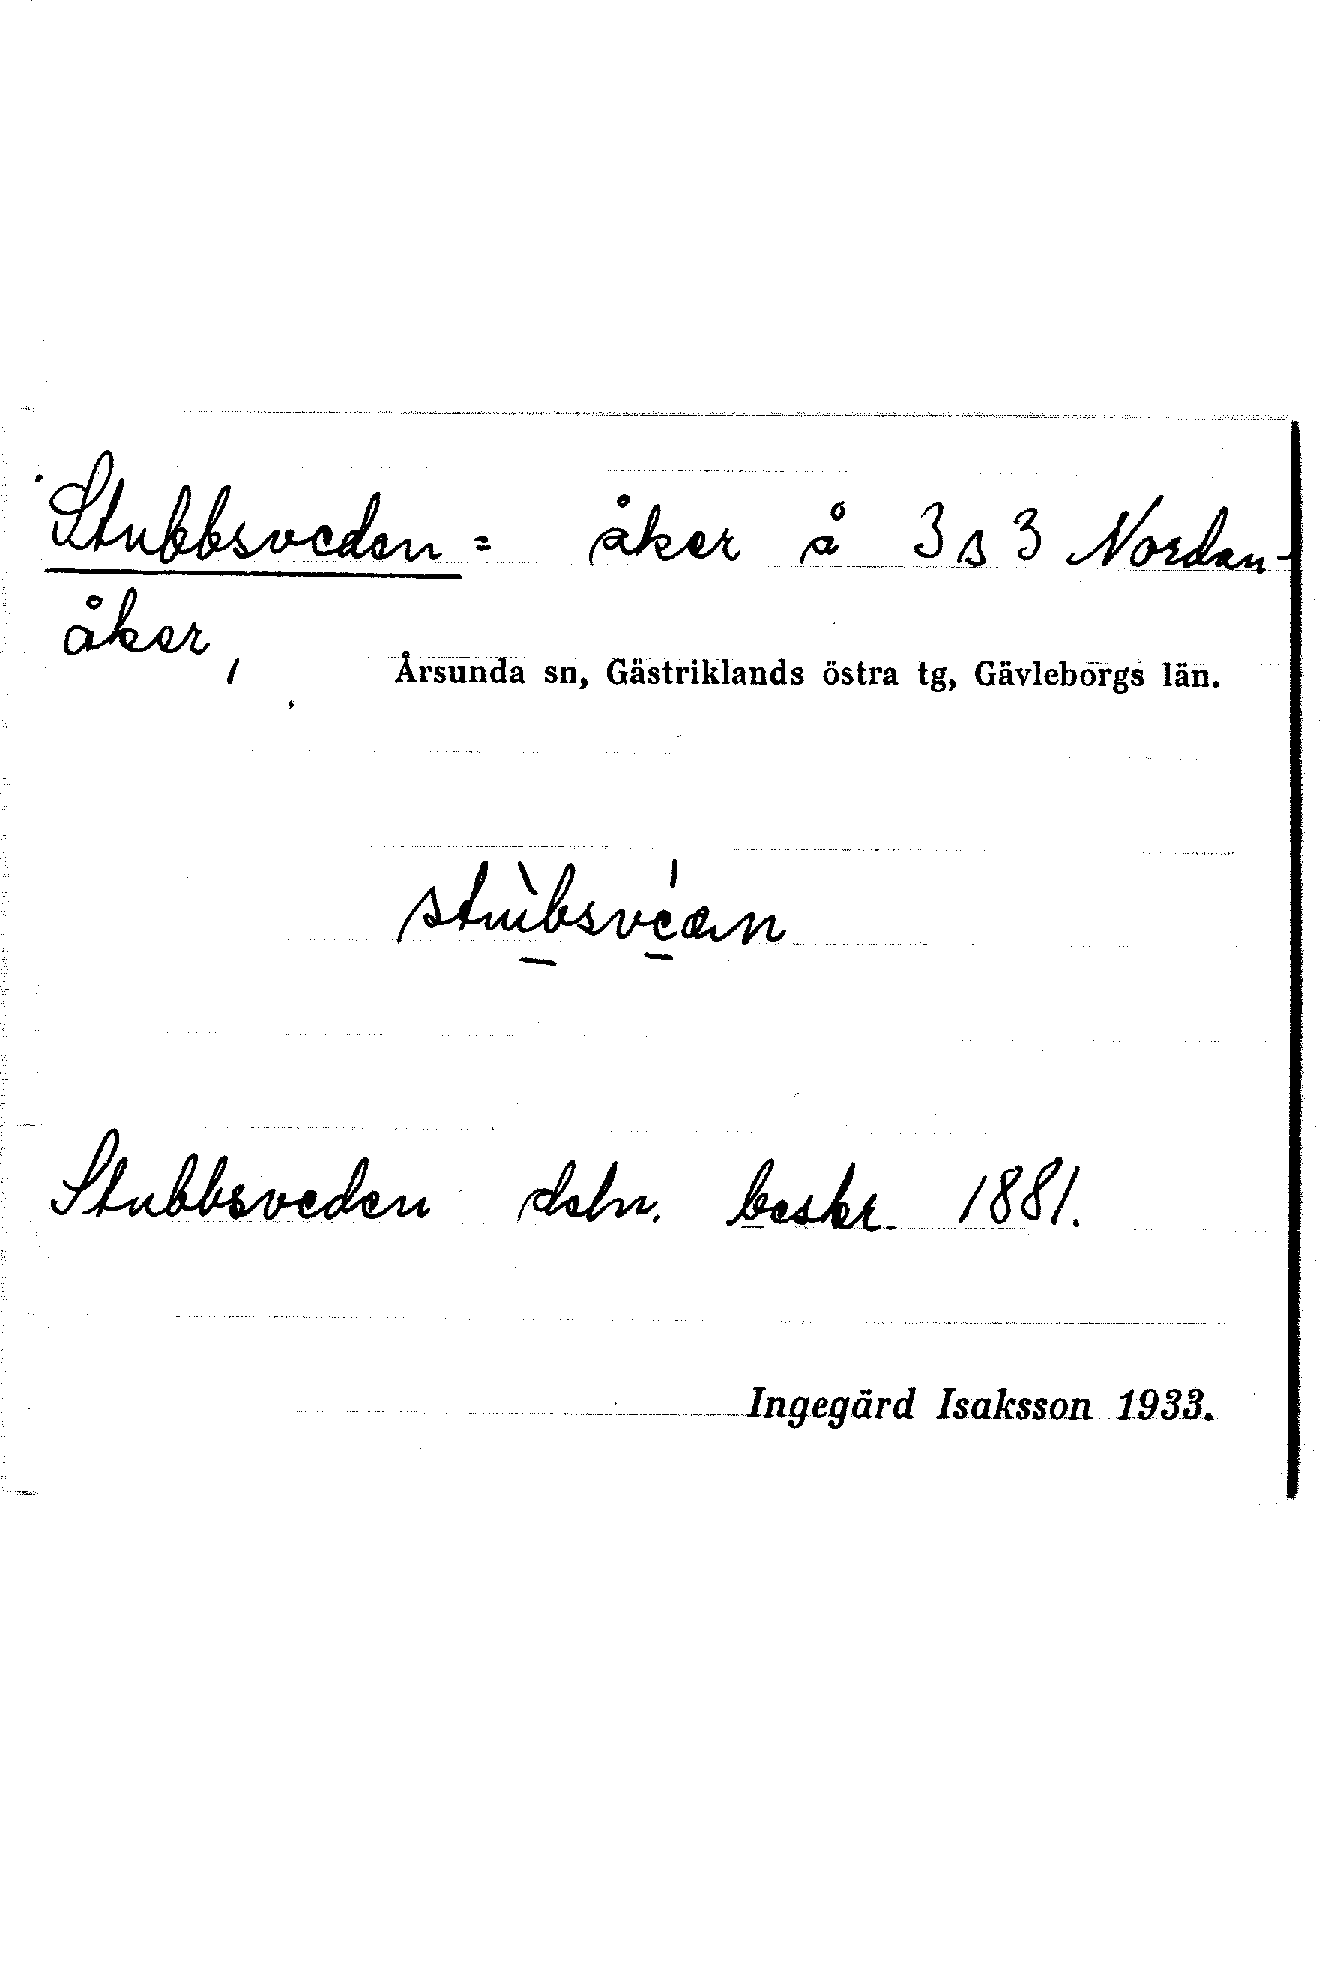 Stubbsveden = åker å 3 s 3 Nordan-
åker,
Årsunda sn, Gästriklands östra tg, Gävleborgs län.
stùbsvéan
Stubbsveden beskr. 1881.
Ingegärd Isaksson 1933.